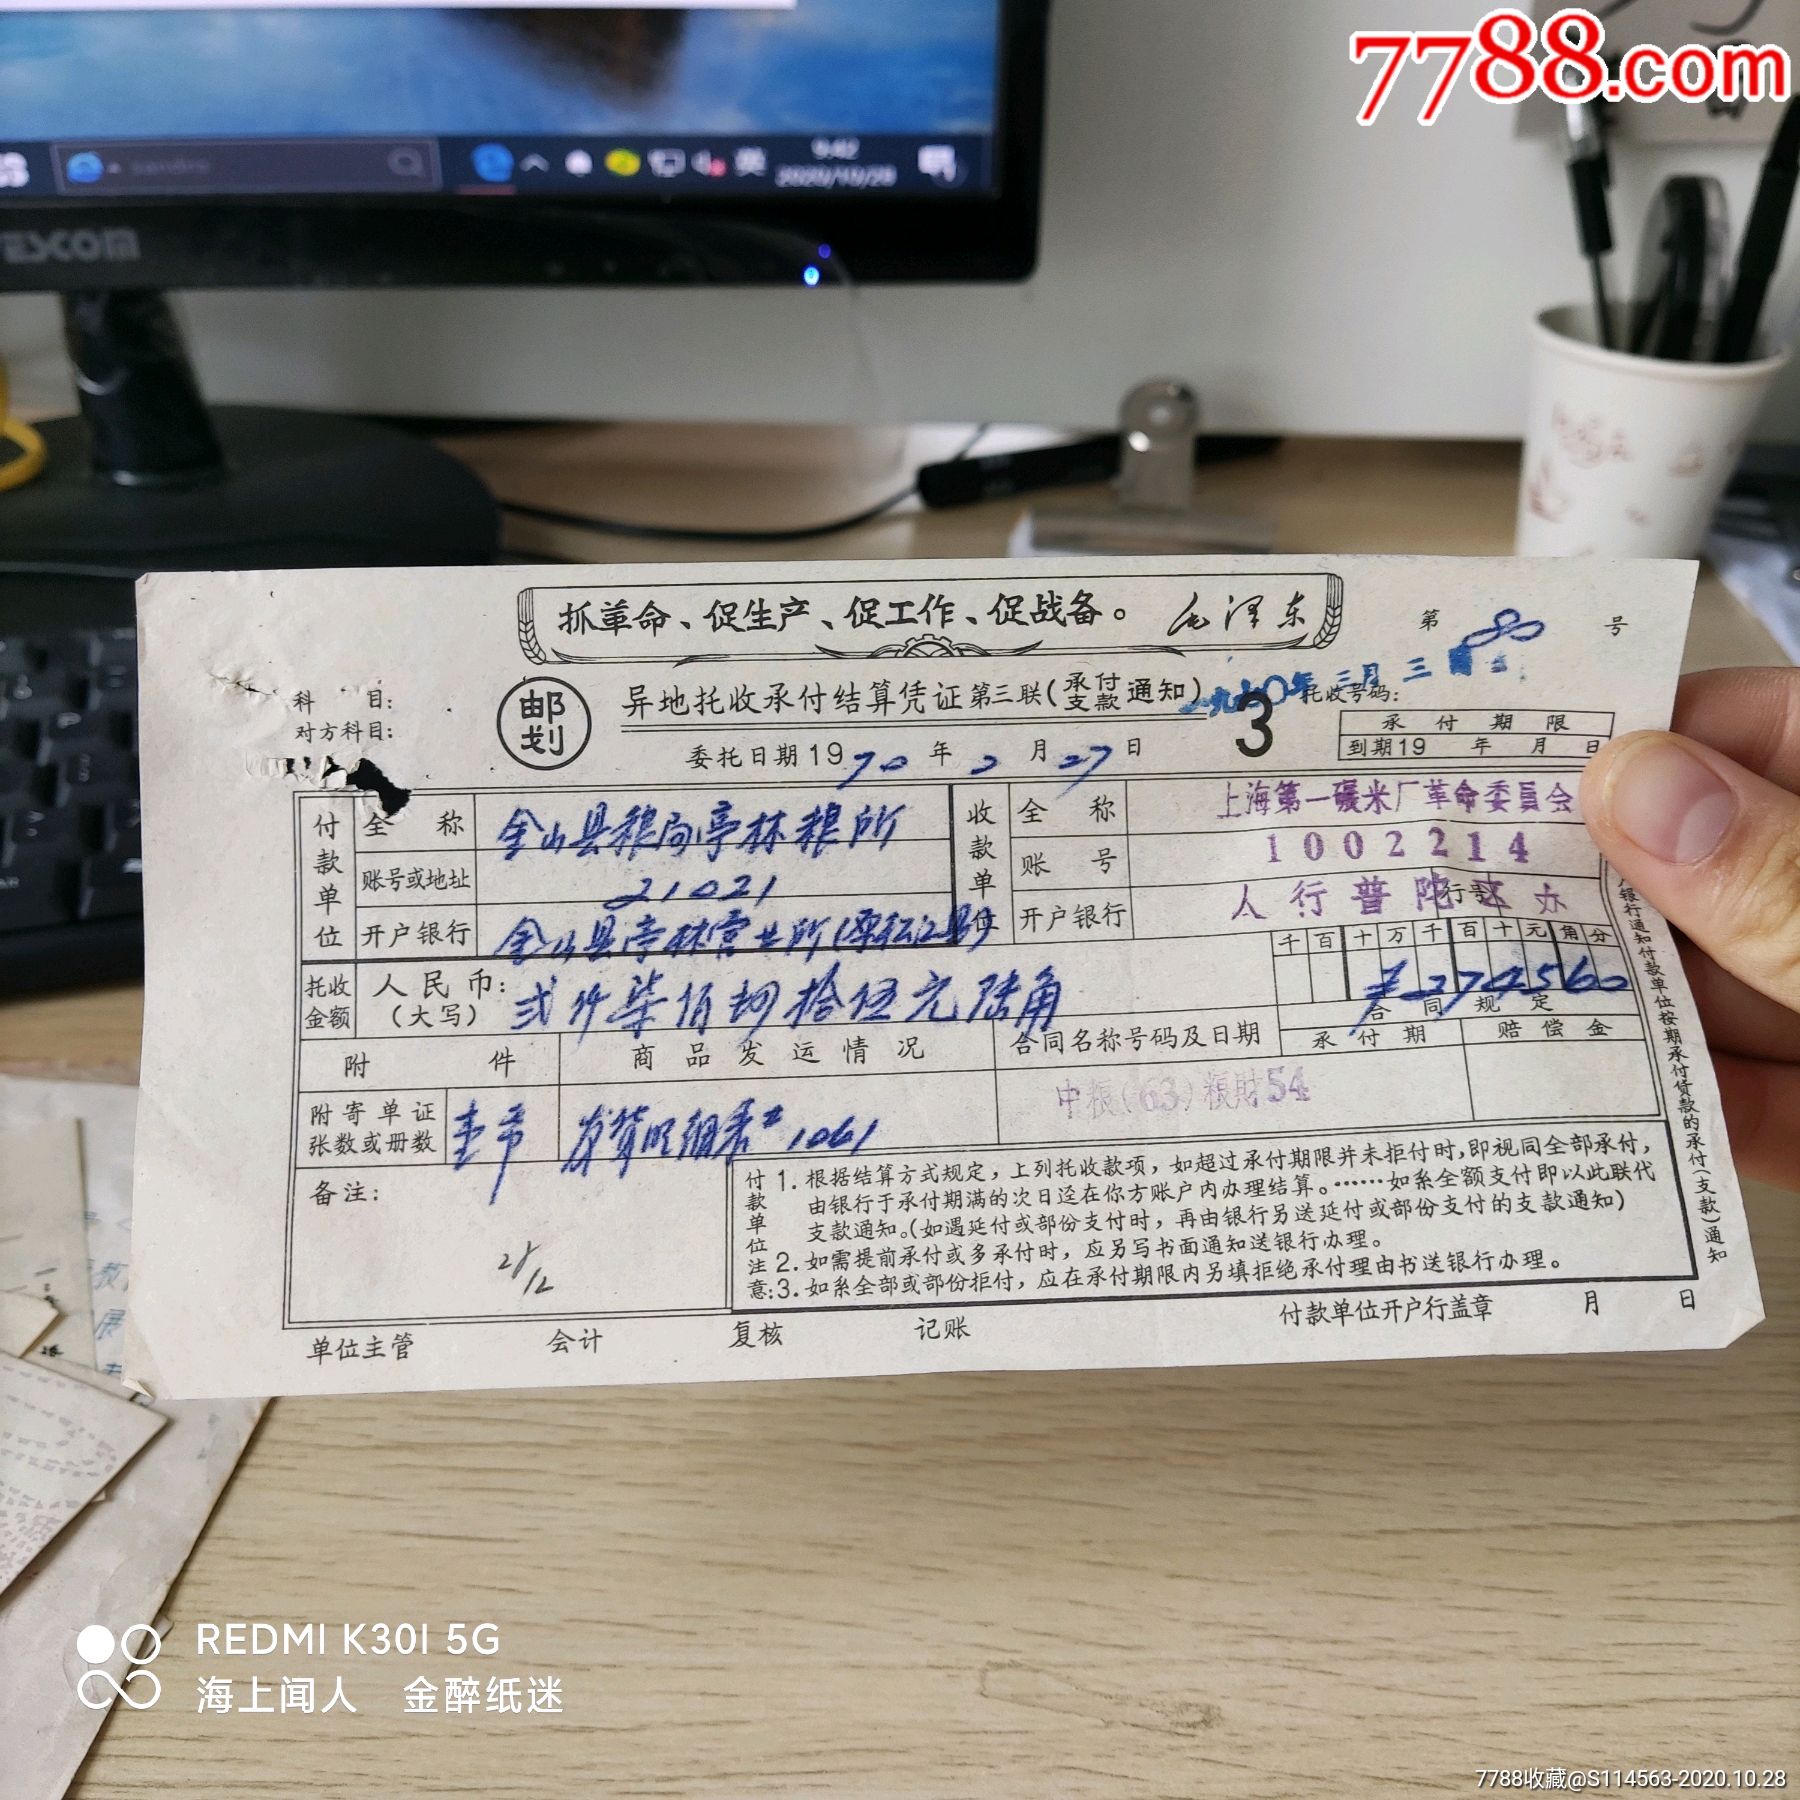 7788.com
9:42
英
2020/10/28
ESCOM
抓革命、促生产、促工作、促战备。 毛泽东
第 号
科 目:
对方科目:
邮划
异地托收承付结算凭证第三联(承付支款通知)
3
一九七〇年三月三日
托收号码:
委托日期1970年2月27日
承付期限
到期19 年 月 日
付款单位
全称 金山县粮局亭林粮所
账号或地址 21021
开户银行 金山县亭林营业所(原松江县)
收款单位
全称 上海第一碾米厂革命委员会
账号 1002214
开户银行 人行普陀区办
行号
千百十万千百十元角分
托收金额
人民币:(大写) 弍仟柒佰肆拾伍元陆角
¥274560
附件
商品发运情况
合同名称号码及日期
合同规定
承付期
赔偿金
附寄单证张数或册数
发货明细表#1061
中粮(63)粮财54
备注:
付款单位注意:
1.根据结算方式规定,上列托收款项,如超过承付期限并未拒付时,即视同全部承付,
由银行于承付期满的次日迳在你方账户内办理结算。……如系全额支付即以此联代
支款通知。(如遇延付或部份支付时,再由银行另送延付或部份支付的支款通知)
2.如需提前承付或多承付时,应另写书面通知送银行办理。
3.如系全部或部份拒付,应在承付期限内另填拒绝承付理由书送银行办理。
银行通知付款单位按期承付货款的承付(支款)通知
单位主管 会计 复核 记账 付款单位开户行盖章 月 日
REDMI K30I 5G
海上闻人 金醉纸迷
7788收藏@S114563-2020.10.28